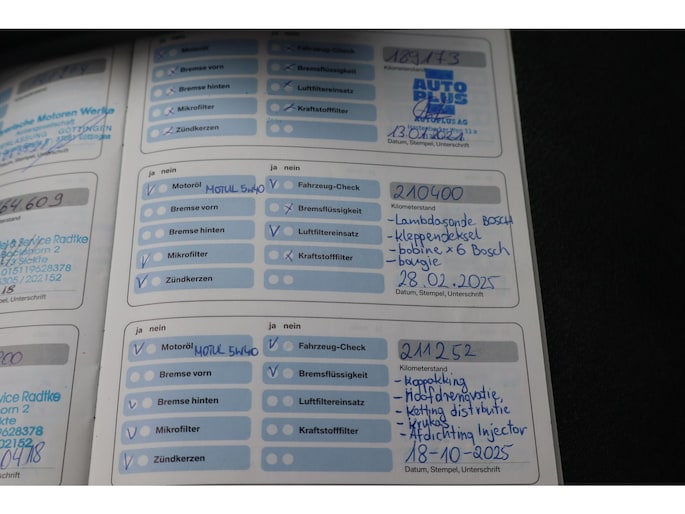 ja nein
Motoröl
Bremse vorn
Bremse hinten
Mikrofilter
Zündkerzen
Fahrzeug-Check
Bremsflüssigkeit
Luftfiltereinsatz
Kraftstofffilter
189173
Kilometerstand
AUTO
PLUS
AUTOPLUS AG
Datum, Stempel, Unterschrift
ja nein
ja nein
Motoröl MOTUL 5W40
Bremse vorn
Bremse hinten
Mikrofilter
Zündkerzen
Fahrzeug-Check
Bremsflüssigkeit
Luftfiltereinsatz
Kraftstofffilter
210400
Kilometerstand
- Lambdasonde BOSCH
- kleppendeksel
- bobine x 6 Bosch
- bougie
28.02.2025
Datum, Stempel, Unterschrift
ja nein
ja nein
Motoröl MOTUL 5W40
Bremse vorn
Bremse hinten
Mikrofilter
Zündkerzen
Fahrzeug-Check
Bremsflüssigkeit
Luftfiltereinsatz
Kraftstofffilter
211252
Kilometerstand
- Koppakking
- Hoofdrenovatie,
- Ketting distributie
- Krukas
- Afdichting Injector
18-10-2025
Datum, Stempel, Unterschrift
Motoren Werke
GÖTTINGEN
Stempel, Unterschrift
64.609
Service Radtke
015119628378
Stempel, Unterschrift
vice Radtke
orn 2
9628378
02152
04.18